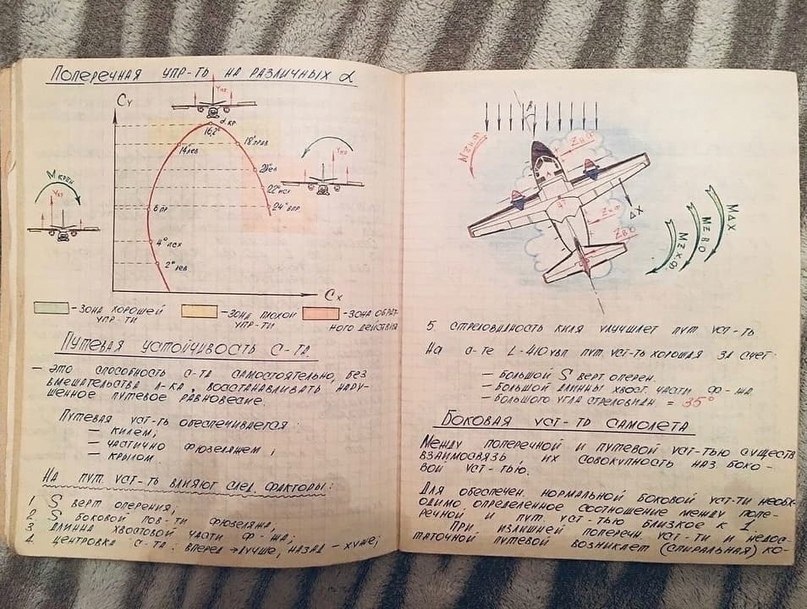 Поперечная упр-ть на различных α
Cy
α кр
16,2°
14 лев
18° прав
20° лев
22° исх
24° впр
6 пр
4° исх
2° лев
M крен
Cx
- зона хорошей упр-ти
- зона плохой упр-ти
- зона обратного действия
Путевая устойчивость с-та
— это способность с-та самостоятельно, без
вмешательства л-ка, восстанавливать нару-
шенное путевое равновесие.
Путевая уст-ть обеспечивается:
— килем,
— частично фюзеляжем,
— крылом.
На пут уст-ть влияют след. факторы:
1 S верт оперения,
2 S боковой пов-ти фюзеляжа,
3 длинна хвостовой части ф-жа;
4 центровка с-та: вперед → лучше, назад — хуже;
β
ΔX
Z в.о
MΔX
M Z В О
M Z к ф
5 стреловидность киля улучшает пут уст-ть
На с-те L-410 увп пут уст-ть хорошая за счет:
— большой S верт оперен.
— большой длинны хвост. части ф-жа
— большого угла стреловидн = 35°
Боковая уст-ть самолета
Между поперечной и путевой уст-тью существ
взаимосвязь, их совокупность наз боко-
вой уст-тью.
Для обеспечен нормальной боковой уст-ти необх-
одимо определенное соотношение между попе-
речной и пут уст-тью близкое к 1
При излишней поперечн уст-ти и недос-
таточной путевой возникает (спиральная) ко-